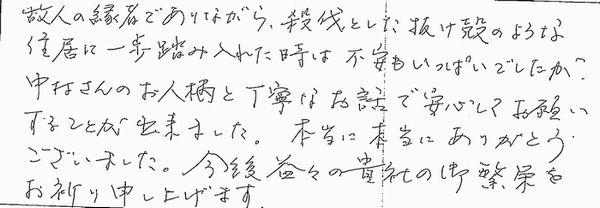 故人の縁者でありながら、殺伐とした抜け殻のような
住居に一歩踏み入れた時は不安もいっぱいでしたが、
中村さんのお人柄と丁寧なお話で安心してお願い
することが出来ました。本当に本当にありがとう
ございました。今後益々の貴社の御繁栄を
お祈り申し上げます